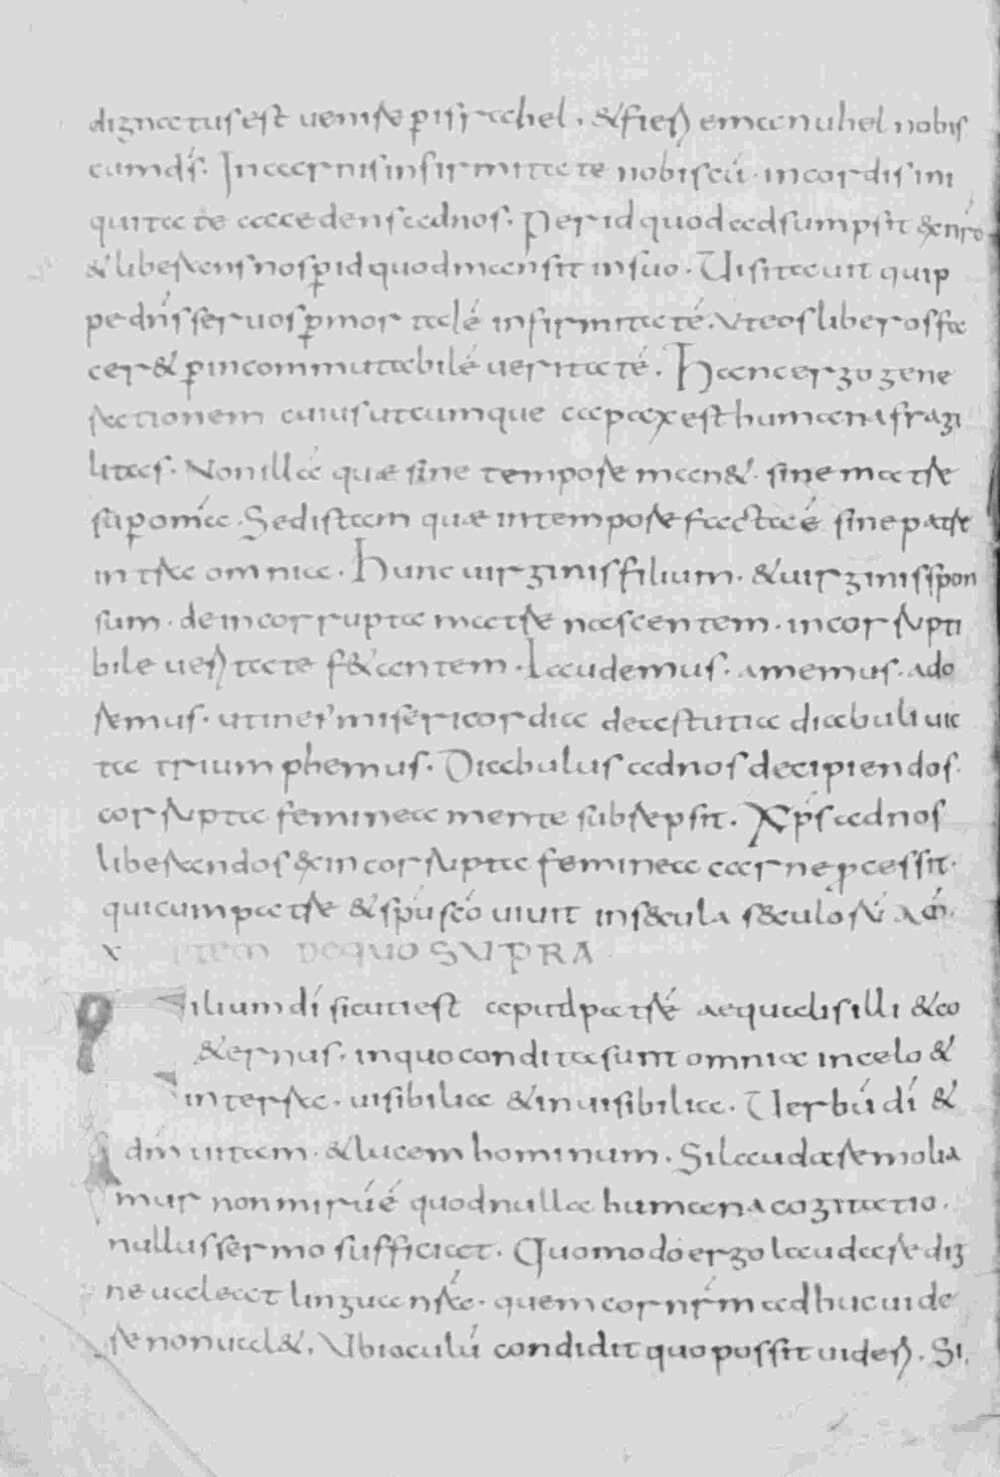 dignatus est uenire p isrrahel. & fieri emanuhel nobis
cumds. In carnis infirmitate nobiscū. in cordis ini
quitate accedens ad nos. Per id quod adsumpsit de nro
& liberans nos p id quod mansit in suo. Uisitauit quip
pe dns seruos p mortalē infirmitatē. Vt eos liberos fa
cer& p incommutabilē ueritatē. Hanc ergo gene
rationem cuius utcumque capax est humana fragi
litas. Non illā quae sine tempore man&. sine matre
sup omīa. Sed istam quae in tempore facta ē sine patre
intra omnia. Hunc uirginis filium. & uirginis spon
sum. de incorrupta matre nascentem. incorrupti
bile ueritate f&antem. Laudemus. amemus. ado
remus. ut in ei' misericordia de astutia diabuli uic
ta triumphemus. Diabulus ad nos decipiendos.
corrupta feminea mente subrepsit. Xps ad nos
liberandos de incorrupta feminea carne pcessit.
qui cum patre & spu sco uiuit in saecula saeculorū am.
Item DE quo SUPRA
Filium di sicuti est apud patrē aequalis illi & co
&ernus. in quo condita sunt omnia in celo &
in terra. uisibilia & inuisibilia. Uerbū di &
dm uitam. & lucem hominum. Si laudare molia
mur non mirū ē quod nulla humana cogitatio.
nullus sermo sufficiat. Quomodo ergo laudare dig
ne ualeat lingua nrā. quem cor nrm adhuc uide
re non ual&. Vbi oculū condidit quo possit uideri. Si.